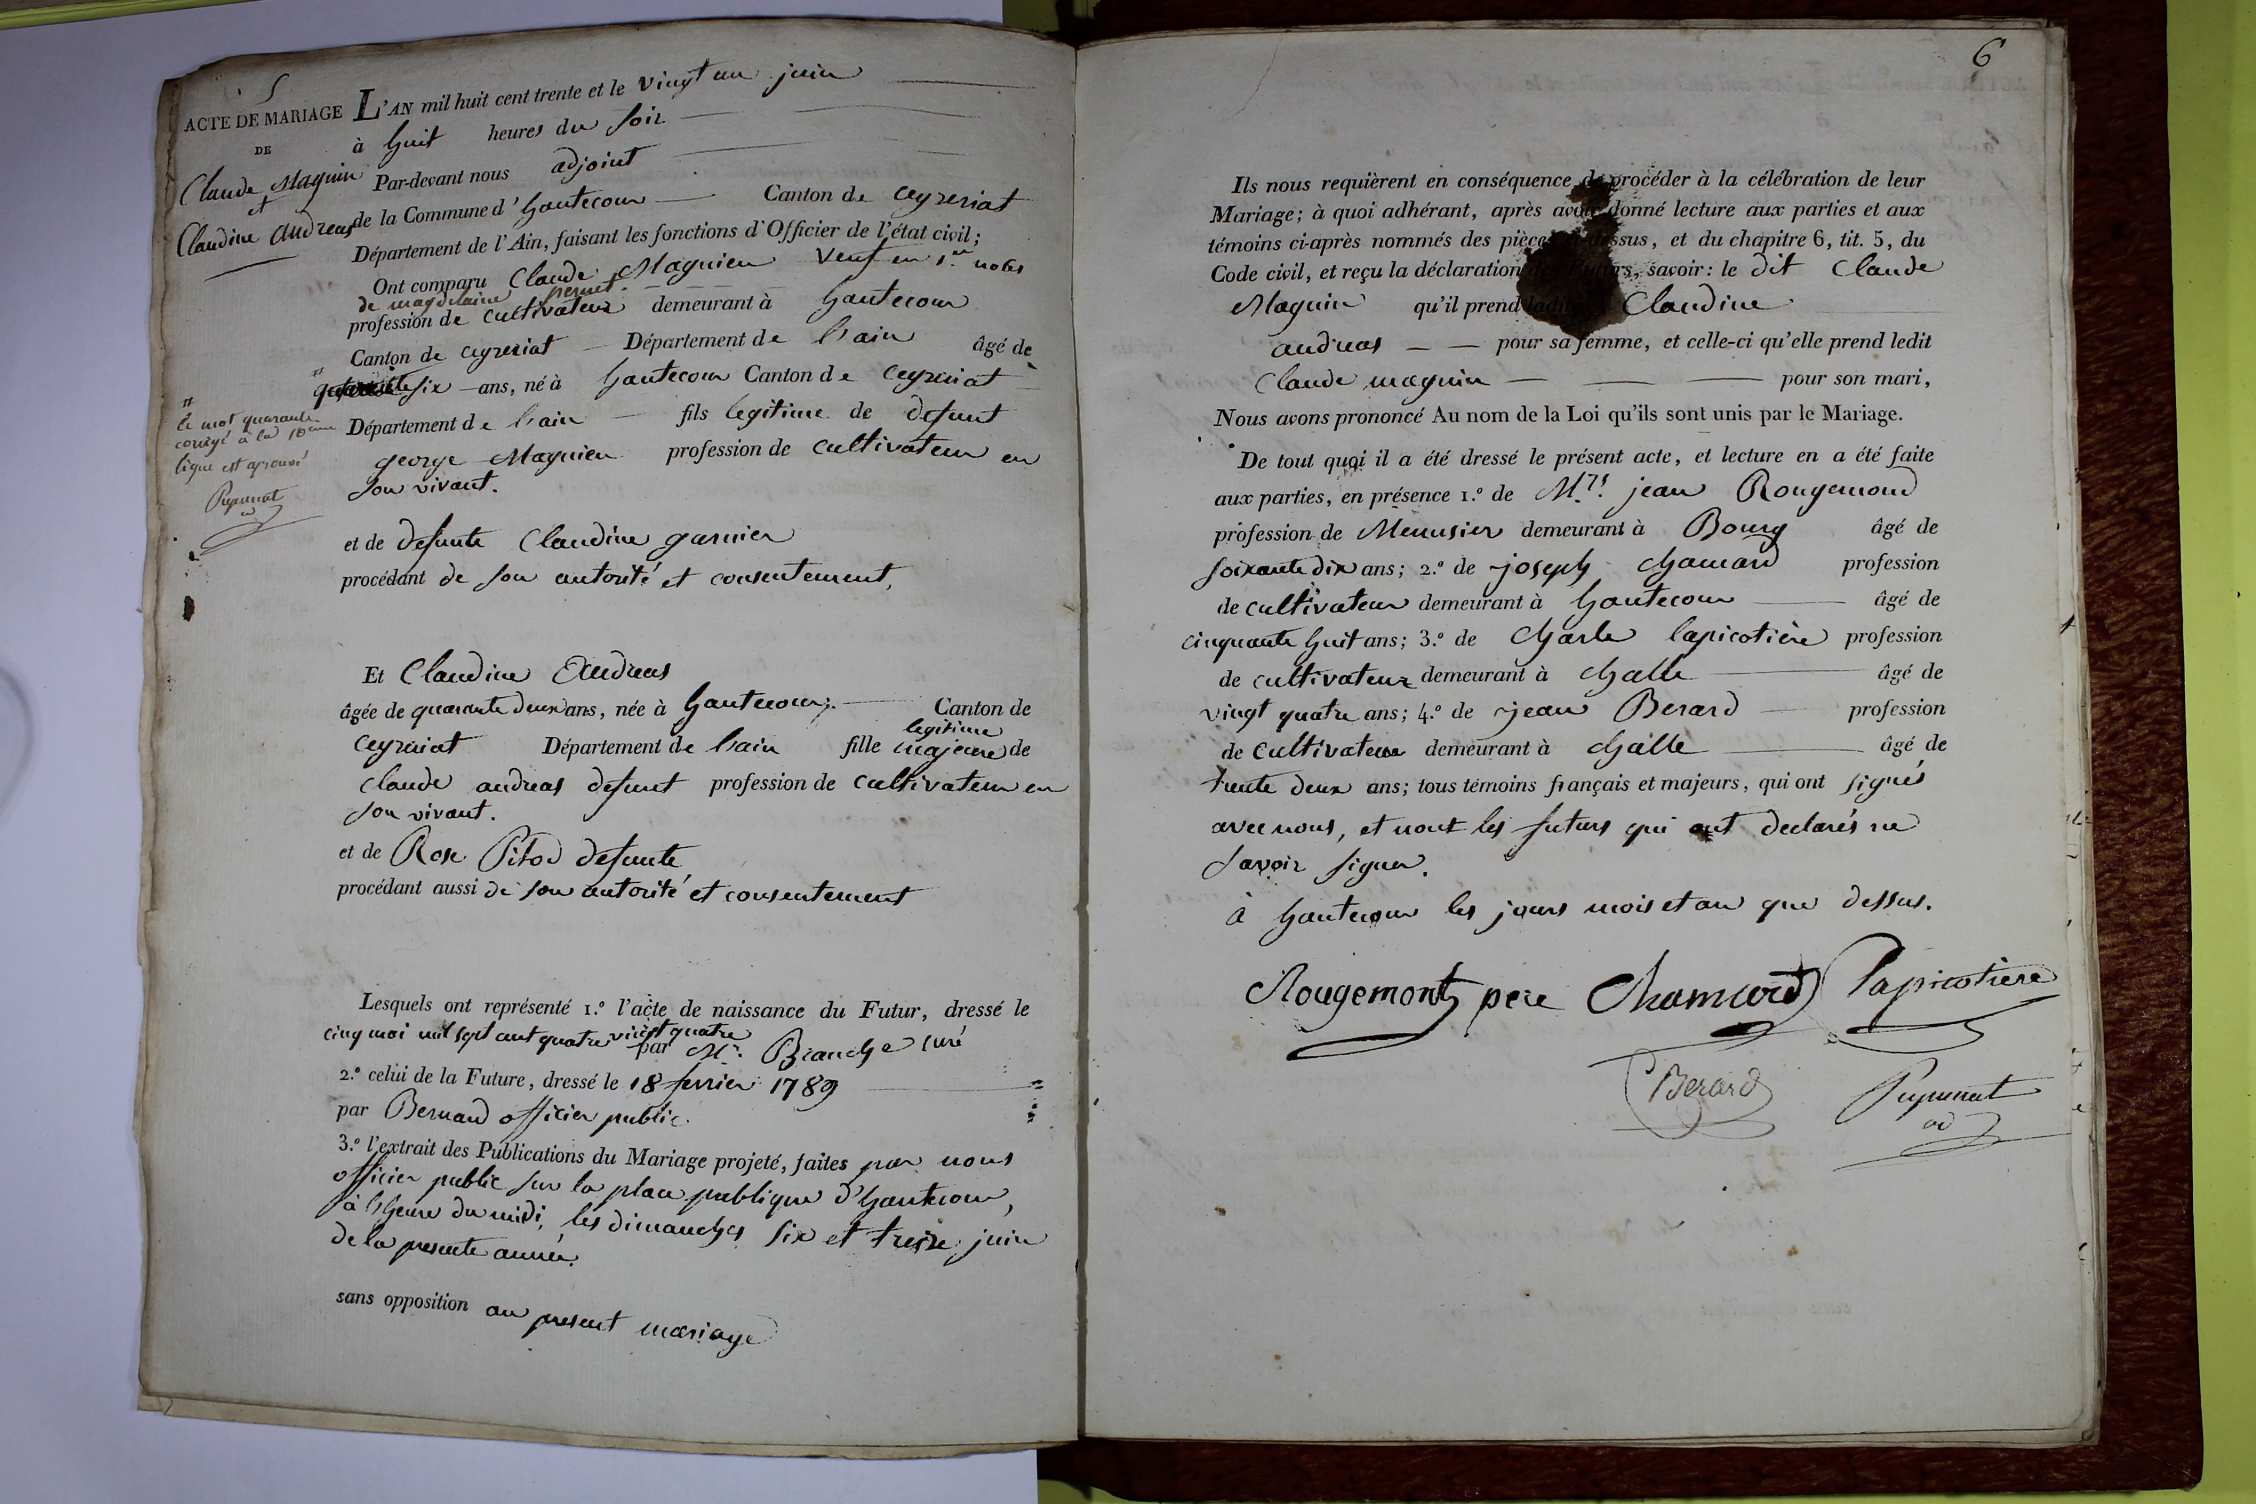 5
ACTE DE MARIAGE
DE
Claude Maguin
et
Claudine Andreas
L'AN mil huit cent trente et le vingt un juin
à huit heures du soir
Par-devant nous adjoint
de la Commune d'hautecour Canton de ceyzeriat
Département de l'Ain, faisant les fonctions d'Officier de l'état civil;
Ont comparu Claude Magnien veuf en 1.er nobs
de magdelaine pernet.
profession de cultivateur demeurant à hautecour
Canton de ceyzeriat Département de l'ain âgé de
quarante six ans, né à hautecour Canton de ceyzeriat
Département de l'ain fils legitime de defunt
george Magnien profession de cultivateur en
son vivant.
le mot quarante
corrigé a la 10eme
ligne est aprouvé
et de defunte Claudine garnier
procédant de son autorité et consentement,
Et Claudine Andreas
âgée de quarante deux ans, née à hautecour; Canton de
legitime
ceyzeriat Département de l'ain fille majeure de
Claude andreas defunt profession de cultivateur en
son vivant.
et de Rose Pitod defunte
procédant aussi de son autorité et consentement
Lesquels ont représenté 1.º l'acte de naissance du Futur, dressé le
cinq mai mil sept cent quatre vingt quatre
par Mr. Branche curé
2.º celui de la Future, dressé le 18 fevrier 1789
par Bernard officier public.
3.º l'extrait des Publications du Mariage projeté, faites par nous
officier public sur la place publique d'hautecour,
à l'heure du midi, les dimanches six et treize juin
de la presente année.
sans opposition au present mariage
6
Ils nous requièrent en conséquence de procéder à la célébration de leur
Mariage; à quoi adhérant, après avoir donné lecture aux parties et aux
témoins ci-après nommés des pièces dessus, et du chapitre 6, tit. 5, du
Code civil, et reçu la déclaration, savoir: le dit Claude
Maguin qu'il prend Claudine
andreas pour sa femme, et celle-ci qu'elle prend ledit
Claude maguin pour son mari,
Nous avons prononcé Au nom de la Loi qu'ils sont unis par le Mariage.
De tout quoi il a été dressé le présent acte, et lecture en a été faite
aux parties, en présence 1.º de M.rs. jean Rougemond
profession de Menusier demeurant à Bourg âgé de
soixante dix ans; 2.º de joseph chamard profession
de cultivateur demeurant à hautecour âgé de
cinquante huit ans; 3.º de charle lapicotière profession
de cultivateur demeurant à challe âgé de
vingt quatre ans; 4.º de jean Berard profession
de cultivateur demeurant à challe âgé de
trente deux ans; tous témoins français et majeurs, qui ont signés
avec nous, et nont les futurs qui ont declarés ne
savoir signer.
à hautecour les jours mois et an que dessus.
Rougemont pere Chamard Lapicotiere
Berard
ad